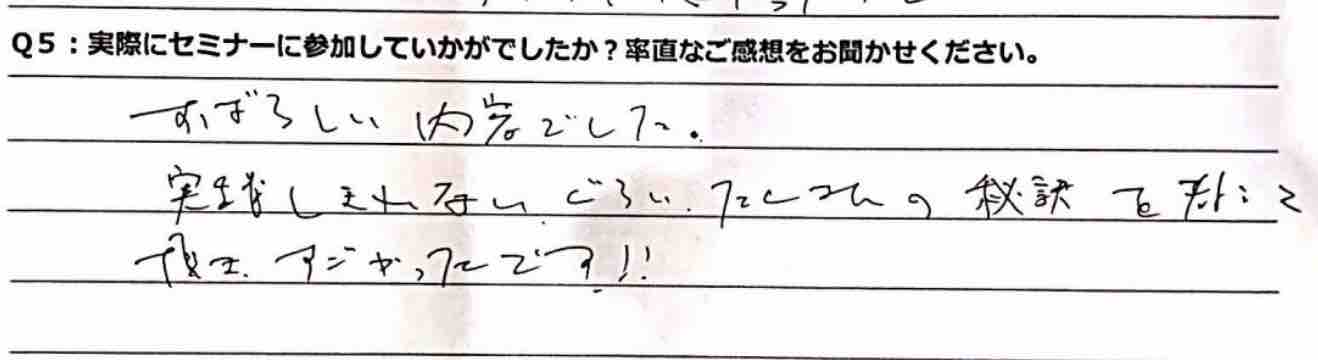 Q5：実際にセミナーに参加していかがでしたか？率直なご感想をお聞かせください。
すばらしい内容でした。
実践しきれないぐらい、たくさんの秘訣を教えて
頂き、すごかったです!!